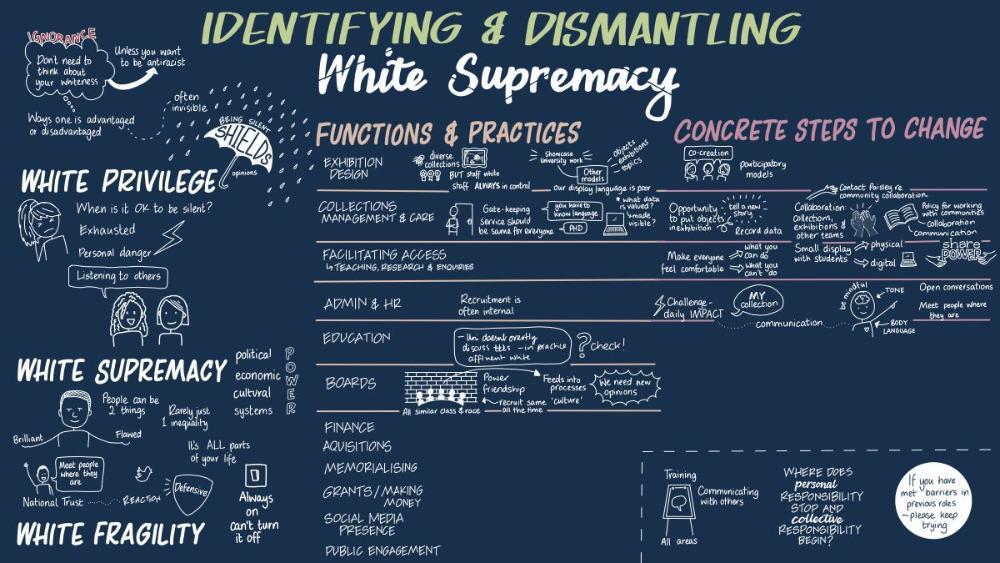 IDENTIFYING & DISMANTLING
White Supremacy
IGNORANCE
Don't need to
think about
your whiteness
Unless you want
to be antiracist
Ways one is advantaged
or disadvantaged
often
invisible
BEING SILENT
SHIELDS
opinions
WHITE PRIVILEGE
When is it OK to be silent?
Exhausted
Personal danger
Listening to others
WHITE SUPREMACY
political
economic
cultural
systems
POWER
People can be
2 things
Brilliant
Flawed
Rarely just
1 inequality
It's ALL parts
of your life
Meet people
where they
are
National Trust
REACTION
Defensive
Always
on
can't turn
it off
WHITE FRAGILITY
FUNCTIONS & PRACTICES
EXHIBITION
DESIGN
diverse
collections
BUT staff white
staff ALWAYS in control
Showcase
University work
Other
models
objects
exhibitions
topics
our display language is poor
COLLECTIONS
MANAGEMENT & CARE
Gate-keeping
service should
be same for everyone
you have to
know language
PHD
what data
is valued?
made
visible?
FACILITATING ACCESS
↳ TEACHING, RESEARCH & ENQUIRIES
ADMIN & HR
Recruitment is
often internal
EDUCATION
- Uni doesn't overtly
discuss this - in practice
affluent white
? check!
BOARDS
All similar class & race
Power
friendship
recruit same
all the time
Feeds into
processes
'culture'
We need new
opinions
FINANCE
AQUISITIONS
MEMORIALISING
GRANTS / MAKING
MONEY
SOCIAL MEDIA
PRESENCE
PUBLIC ENGAGEMENT
CONCRETE STEPS TO CHANGE
co-creation
participatory
models
Opportunity
to put objects
in exhibition
tell a new
story
Record data
Contact Paisley re
community collaboration
Collaboration
collections,
exhibitions &
other teams
Policy for working
with communities
collaboration
communication
Small display
with students
physical
digital
share
POWER
Make everyone
feel comfortable
what you
can do
what you
can't do
Challenge -
daily IMPACT
MY
collection
communication
be mindful
TONE
BODY
LANGUAGE
Open conversations
Meet people where
they are
Training
Communicating
with others
All areas
WHERE DOES
personal
RESPONSIBILITY
STOP AND
collective
RESPONSIBILITY
BEGIN?
If you have
met barriers in
previous roles
~ please keep
trying